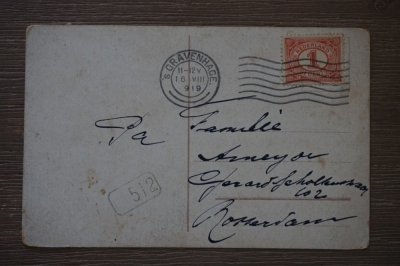 'S GRAVENHAGE
11-12V
16 VIII
919
Nederland
1
Pa
Familie
Gerard Scholtenstraat
Rotterdam
512